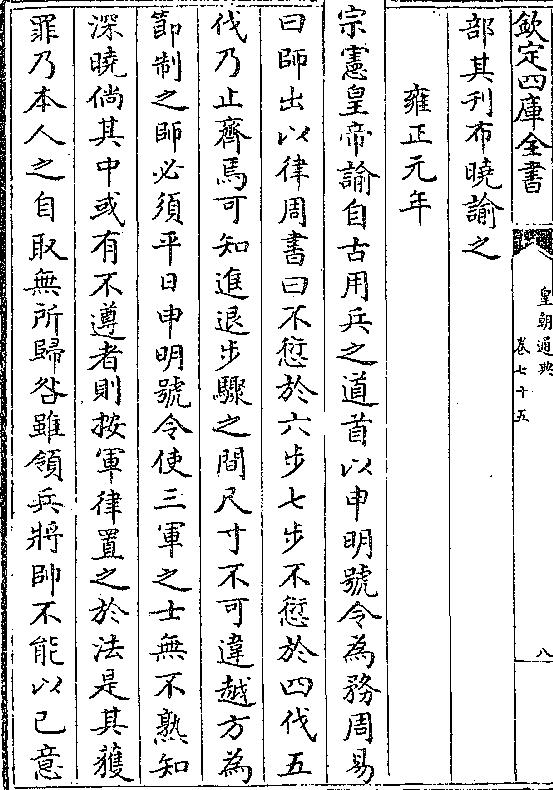 欽定四庫全書
皇朝通典
卷七十五
八
部其刊布曉諭之
雍正元年
宗憲皇帝諭自古用兵之道首以申明號令為務周易
曰師出以律周書曰不愆於六步七步不愆於四伐五
伐乃止齊焉可知進退步驟之間尺寸不可違越方為
節制之師必須平日申明號令使三軍之士無不熟知
深曉倘其中或有不遵者則按軍律置之於法是其獲
罪乃本人之自取無所歸咎雖領兵將帥不能以己意